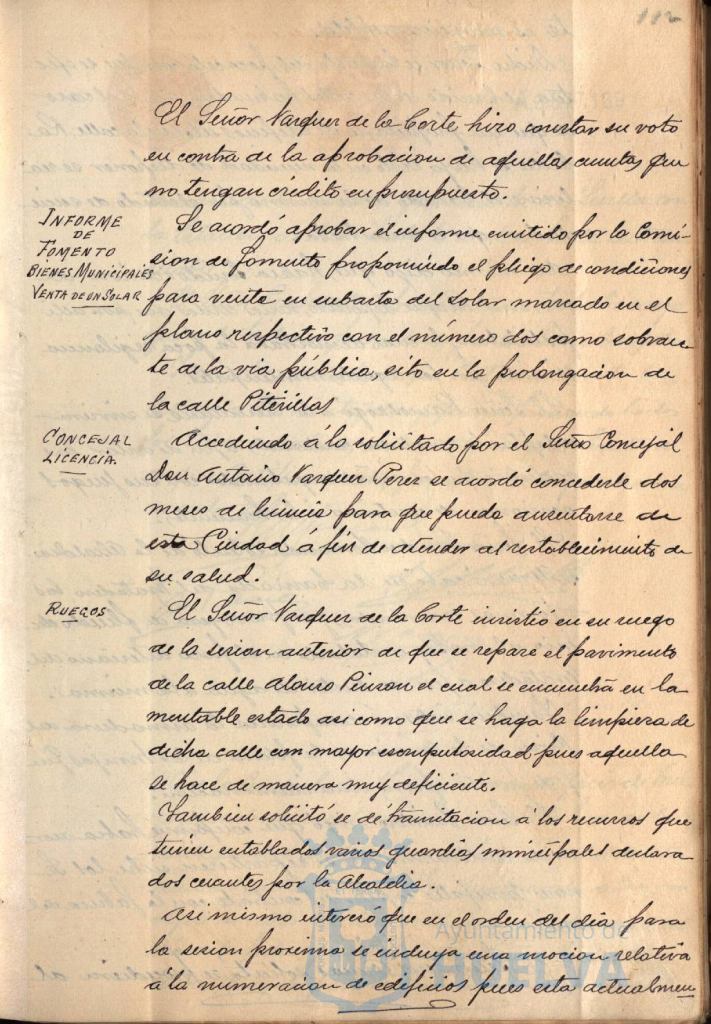 112
El Señor Vazquez de la Corte hizo constar su voto
en contra de la aprobacion de aquellas cuentas que
no tengan crédito en presupuesto.
INFORME
DE
FOMENTO
BIENES MUNICIPALES
VENTA DE UN SOLAR
Se acordó aprobar el informe emitido por la Comi-
sion de Fomento proponiendo el pliego de condiciones
para venta en subasta del solar marcado en el
plano respectivo con el número dos como sobran-
te de la via pública, sito en la prolongacion de
la calle Piterillas
CONCEJAL
LICENCIA.
Accediendo á lo solicitado por el Señor Concejal
Don Antonio Vazquez Perez se acordó concederle dos
meses de licencia para que pueda ausentarse de
esta Ciudad á fin de atender al restablecimiento de
su salud.
RUEGOS
El Señor Vazquez de la Corte insistió en su ruego
de la sesion anterior de que se repare el pavimento
de la calle Alonso Pinzon el cual se encuentra en la
mentable estado asi como que se haga la limpieza de
dicha calle con mayor escrupulosidad pues aquella
se hace de manera muy deficiente.
Tambien solicitó se dé tramitacion á los recursos que
tienen entablados varios guardias municipales declara
dos cesantes por la Alcaldia.
Asi mismo interesó que en el orden del dia para
la sesion proxima se incluya una mocion relativa
á la numeracion de edificios pues esta actualmen
Ayuntamiento de
HUELVA